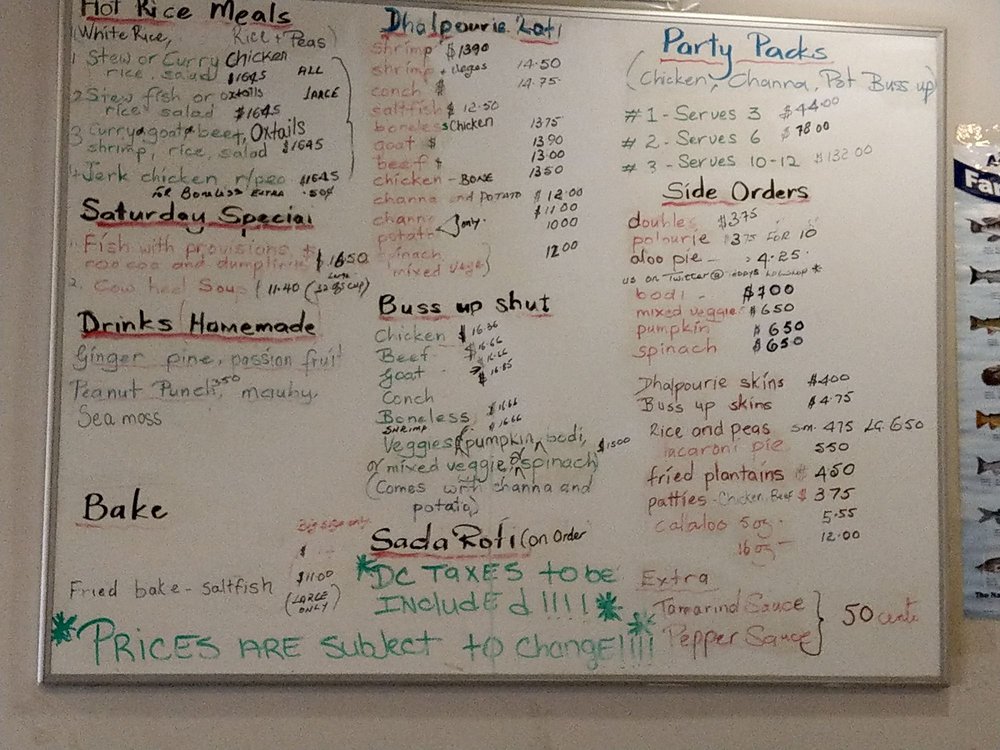 Hot Rice Meals
White Rice, Rice + Peas
1 Stew or Curry Chicken
rice, salad $1645 ALL
2 Stew fish or oxtails LARGE
rice salad $1645
3 Curry goat, beef, Oxtails
shrimp, rice, salad $1645
4 Jerk chicken r/peo $1645
for Boneless extra .50¢
Saturday Special
1. Fish with provisions $16.50
coo coo and dumpling
2. Cow heel Soup 11.40
Drinks Homemade
Ginger pine, passion fruit
Peanut Punch, 350 mauby,
Sea moss
Bake
Big size only
$
Fried bake - saltfish $11.00
(LARGE
ONLY)
Dhalpourie Roti
shrimp $1390
shrimp + veges 14.50
conch $ 14.75
saltfish $ 12.50
boneless Chicken 1375
goat $ 1390
beef $ 13.00
chicken - BONE 1350
channa and POTATO $12.00
channa $11.00
potato only. 1000
spinach 12.00
mixed vege
Buss up shut
Chicken $16.66
Beef $16.66
Goat 16.66
Conch $16.85
Boneless $16.66
SHRIMP $16.66
Veggies (pumpkin, bodi, $1500
or mixed veggie or spinach)
(Comes with channa and
potato)
Sada Roti (on Order
DC TAXES to be
INCLUDEd !!!!
PRICES ARE SUBJECT to change!!!!
Party Packs
(Chicken, Channa, Pot Buss up)
#1 - Serves 3 $44.00
#2 - Serves 6 $78.00
#3 - Serves 10-12 $132.00
Side Orders
doubles $375
polourie $375 FOR 10
aloo pie - 4.25
us on Twitter@
bodi - $700
mixed veggie $650
pumpkin $650
spinach $650
Dhalpourie skins $400
Buss up skins $4.75
Rice and peas sm. 475 LG. 650
macaroni pie 550
fried plantains $450
patties - Chicken, Beef $375
calaloo 5oz 5.55
16oz - 12.00
Extra
Tamarind Sauce
Pepper Sauce 50 cents
Fa
The Na